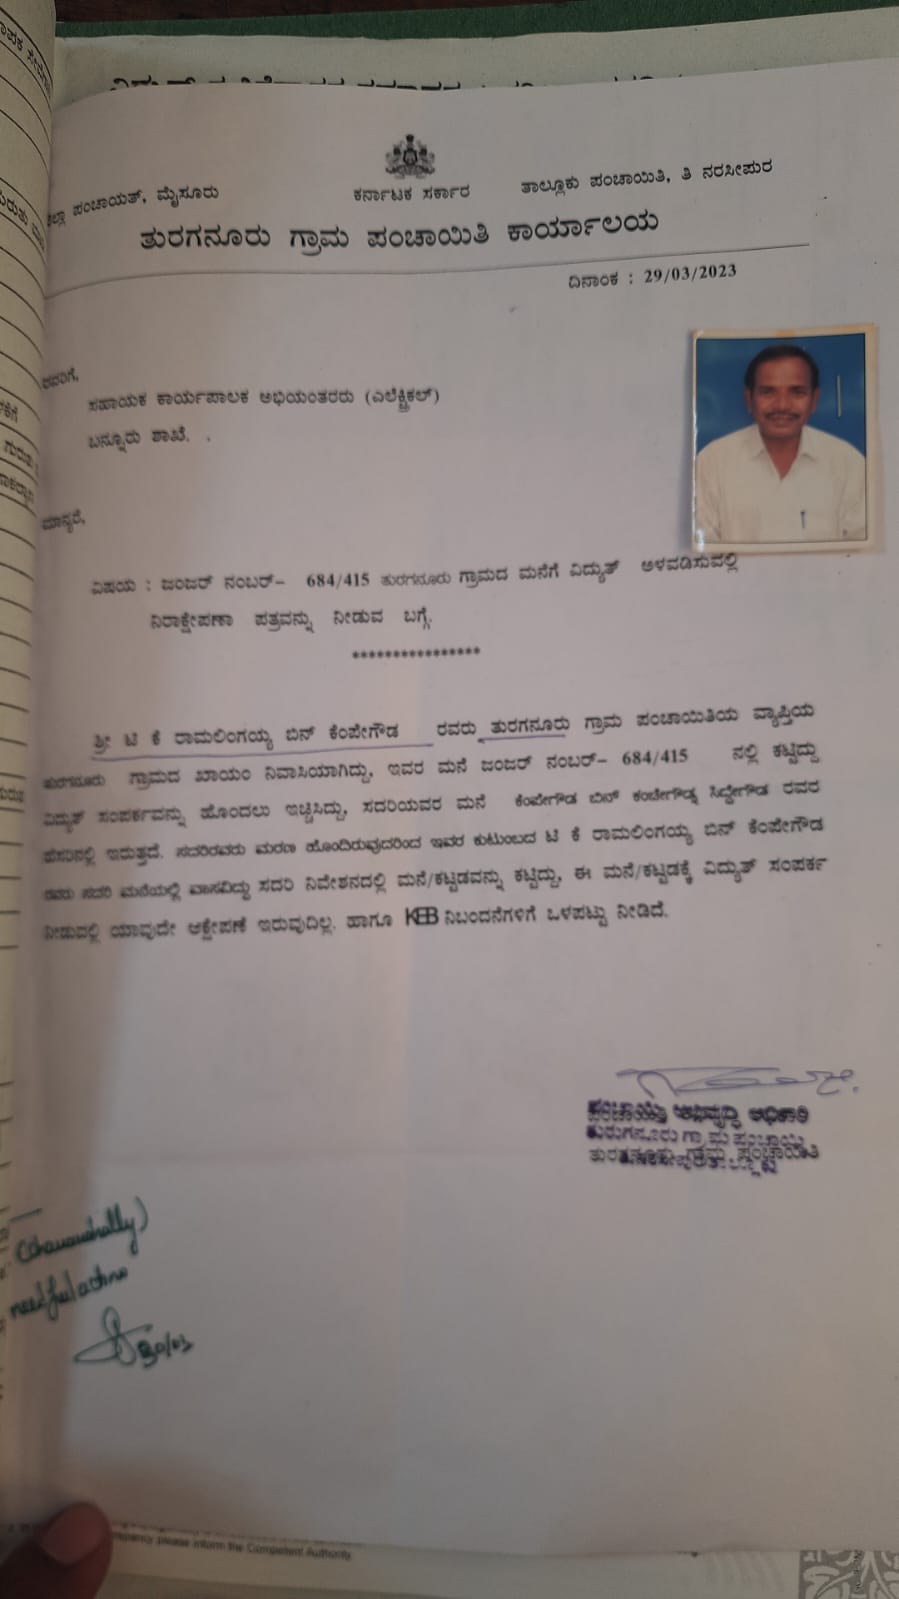 ಕರ್ನಾಟಕ ಸರ್ಕಾರ
ಪಂಚಾಯತ್, ಮೈಸೂರು
ತಾಲ್ಲೂಕು ಪಂಚಾಯಿತಿ, ತಿ ನರಸೀಪುರ
ತುರಗನೂರು ಗ್ರಾಮ ಪಂಚಾಯಿತಿ ಕಾರ್ಯಾಲಯ
ದಿನಾಂಕ : 29/03/2023
ರವರಿಗೆ,
ಸಹಾಯಕ ಕಾರ್ಯಪಾಲಕ ಅಭಿಯಂತರರು (ಎಲೆಕ್ಟ್ರಿಕಲ್)
ಬನ್ನೂರು ಶಾಖೆ. .
ಮಾನ್ಯರೆ,
ವಿಷಯ : ಜಂಜರ್ ನಂಬರ್– 684/415 ತುರಗನೂರು ಗ್ರಾಮದ ಮನೆಗೆ ವಿದ್ಯುತ್ ಅಳವಡಿಸುವಲ್ಲಿ
ನಿರಾಕ್ಷೇಪಣಾ ಪತ್ರವನ್ನು ನೀಡುವ ಬಗ್ಗೆ.
****************
ಶ್ರೀ ಟಿ ಕೆ ರಾಮಲಿಂಗಯ್ಯ ಬಿನ್ ಕೆಂಪೇಗೌಡ ರವರು ತುರಗನೂರು ಗ್ರಾಮ ಪಂಚಾಯಿತಿಯ ವ್ಯಾಪ್ತಿಯ
ತುರಗನೂರು ಗ್ರಾಮದ ಖಾಯಂ ನಿವಾಸಿಯಾಗಿದ್ದು, ಇವರ ಮನೆ ಜಂಜರ್ ನಂಬರ್– 684/415 ನಲ್ಲಿ ಕಟ್ಟಿದ್ದು
ವಿದ್ಯುತ್ ಸಂಪರ್ಕವನ್ನು ಹೊಂದಲು ಇಚ್ಚಿಸಿದ್ದು, ಸದರಿಯವರ ಮನೆ ಕೆಂಪೇಗೌಡ ಬಿನ್ ಸಿದ್ದೇಗೌಡ ರವರ
ಹೆಸರಿನಲ್ಲಿ ಇರುತ್ತದೆ. ಸದರಿರವರು ಮರಣ ಹೊಂದಿರುವುದರಿಂದ ಇವರ ಕುಟುಂಬದ ಟಿ ಕೆ ರಾಮಲಿಂಗಯ್ಯ ಬಿನ್ ಕೆಂಪೇಗೌಡ
ರವರು ಸದರಿ ಮನೆಯಲ್ಲಿ ವಾಸವಿದ್ದು ಸದರಿ ನಿವೇಶನದಲ್ಲಿ ಮನೆ/ಕಟ್ಟಡವನ್ನು ಕಟ್ಟಿದ್ದು, ಈ ಮನೆ/ಕಟ್ಟಡಕ್ಕೆ ವಿದ್ಯುತ್ ಸಂಪರ್ಕ
ನೀಡುವಲ್ಲಿ ಯಾವುದೇ ಆಕ್ಷೇಪಣೆ ಇರುವುದಿಲ್ಲ. ಹಾಗೂ KEB ನಿಬಂದನೆಗಳಿಗೆ ಒಳಪಟ್ಟು ನೀಡಿದೆ.
ಪಂಚಾಯಿತಿ ಅಭಿವೃದ್ಧಿ ಅಧಿಕಾರಿ
ತುರಗನೂರು ಗ್ರಾಮ ಪಂಚಾಯಿತಿ
needful action
30/03
please inform the Competent Authority